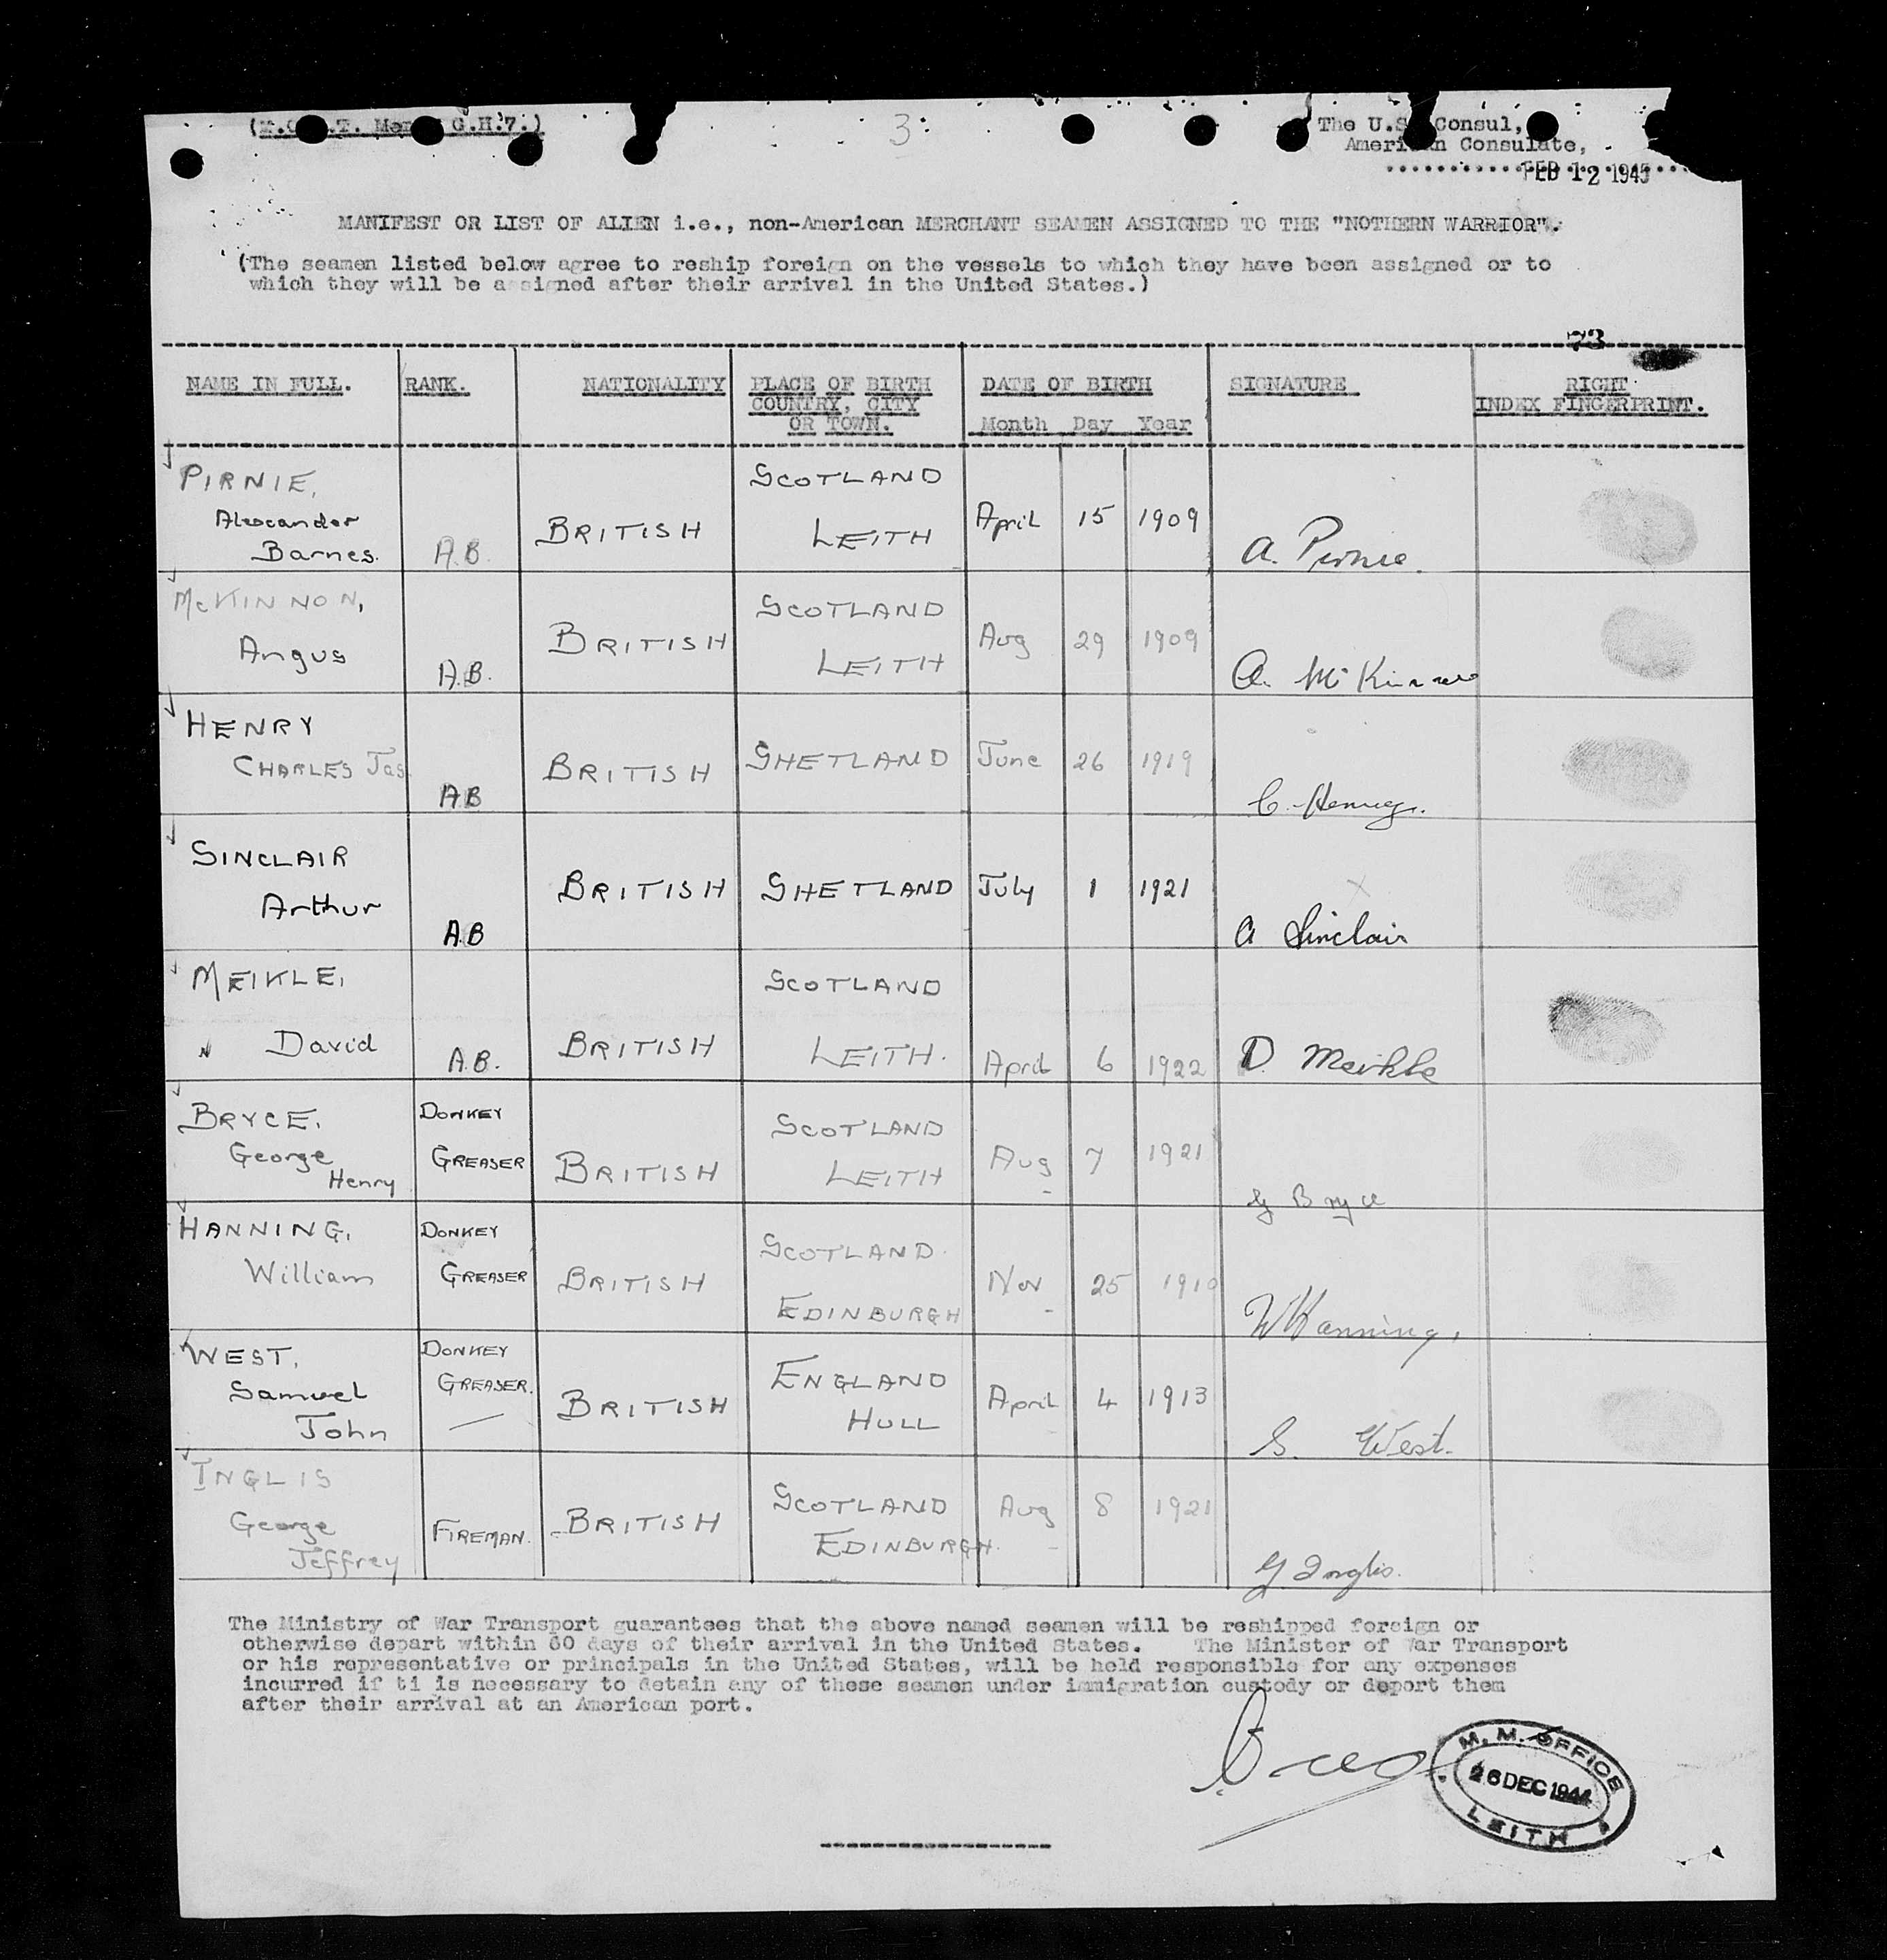 G.H.7.)
3
The U.S. Consul,
American Consulate,
FEB 12 1945
MANIFEST OR LIST OF ALIEN i.e., non-American MERCHANT SEAMEN ASSIGNED TO THE "NOTHERN WARRIOR".
(The seamen listed below agree to reship foreign on the vessels to which they have been assigned or to
which they will be assigned after their arrival in the United States.)
73
NAME IN FULL. RANK. NATIONALITY PLACE OF BIRTH COUNTRY, CITY OR TOWN. DATE OF BIRTH Month Day Year SIGNATURE RIGHT INDEX FINGERPRINT.
PIRNIE, Alexander Barnes. A.B. BRITISH SCOTLAND LEITH April 15 1909 A. Pirnie.
McKINNON, Angus A.B. BRITISH SCOTLAND LEITH Aug 29 1909 A. McKinnon
HENRY CHARLES Jas. AB BRITISH SHETLAND June 26 1919 C. Henry.
SINCLAIR Arthur A.B BRITISH SHETLAND July 1 1921 X A Sinclair
MEIKLE, David A.B. BRITISH SCOTLAND LEITH. April 6 1922 D. Meikle
BRYCE, George Henry DONKEY GREASER BRITISH SCOTLAND LEITH Aug 7 1921 G Bryce
HANNING, William DONKEY GREASER BRITISH SCOTLAND EDINBURGH Nov 25 1910 W Hanning.
WEST, Samuel John DONKEY GREASER. BRITISH ENGLAND HULL April 4 1913 S. West.
INGLIS George Jeffrey FIREMAN. BRITISH SCOTLAND EDINBURGH. Aug 8 1921 G Inglis.
The Ministry of War Transport guarantees that the above named seamen will be reshipped foreign or
otherwise depart within 60 days of their arrival in the United States. The Minister of War Transport
or his representative or principals in the United States, will be held responsible for any expenses
incurred if ti is necessary to detain any of these seamen under immigration custody or deport them
after their arrival at an American port.
M. M. OFFICE
26 DEC 1944
LEITH